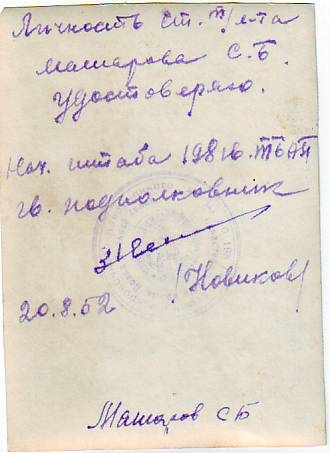 Личность ст. т/ л-та
Машарова С.Б.
удостоверяю.
Нач. штаба 198 гв. ТБАП
гв. подполковник
/Новиков/
20.8.52
Машаров СБ